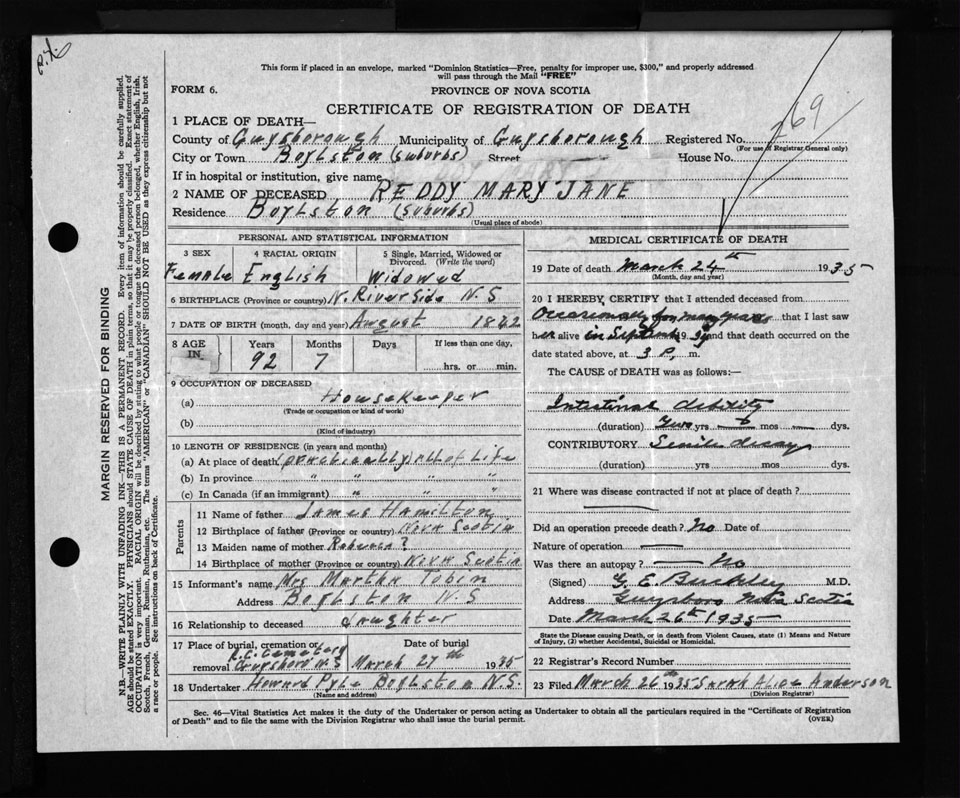 This form if placed in an envelope, marked "Dominion Statistics—Free, penalty for improper use, $300," and properly addressed
will pass through the Mail "FREE"
FORM 6.
PROVINCE OF NOVA SCOTIA
CERTIFICATE OF REGISTRATION OF DEATH
269
1 PLACE OF DEATH—
County of Guysborough Municipality of Guysborough Registered No.
(For use of Registrar General only)
City or Town Boylston (suburbs) Street House No.
If in hospital or institution, give name
2 NAME OF DECEASED REDDY MARY JANE
Residence Boylston (suburbs)
(Usual place of abode)
PERSONAL AND STATISTICAL INFORMATION
3 SEX 4 RACIAL ORIGIN 5 Single, Married, Widowed or
Divorced. (Write the word)
Female English Widowed
6 BIRTHPLACE (Province or country) N. Riverside N.S
7 DATE OF BIRTH (month, day and year) August 1842
8 AGE Years Months Days If less than one day,
IN 92 7 hrs. or min.
9 OCCUPATION OF DECEASED
(a) Housekeeper
(Trade or occupation or kind of work)
(b)
(Kind of industry)
10 LENGTH OF RESIDENCE (in years and months)
(a) At place of death practically all of Life
(b) In province " " " "
(c) In Canada (if an immigrant) " " "
Parents
11 Name of father James Hamilton
12 Birthplace of father (Province or country) Nova Scotia
13 Maiden name of mother Rebecca ?
14 Birthplace of mother (Province or country) Nova Scotia
15 Informant's name Mrs Martha Tobin
Address Boylston N.S
16 Relationship to deceased daughter
17 Place of burial, cremation or Date of burial
R.C. Cemetery
removal Guysboro N.S March 27th 1935
18 Undertaker Howard Pyle Boylston N.S.
(Name and address)
MEDICAL CERTIFICATE OF DEATH
19 Date of death March 24th 1935
(Month, day and year)
20 I HEREBY CERTIFY that I attended deceased from
Occasionally for many years that I last saw
her alive in September 19 34 and that death occurred on the
date stated above, at 3 P. m.
The CAUSE of DEATH was as follows:—
Intestinal debility
(duration) yrs mos dys.
CONTRIBUTORY Senile decay
(duration) yrs mos dys.
21 Where was disease contracted if not at place of death?
Did an operation precede death? No Date of
Nature of operation
Was there an autopsy? No
(Signed) G. E. Buckley M.D.
Address Guysboro Nova Scotia
Date March 26th 1935
State the Disease causing Death, or in death from Violent Causes, state (1) Means and Nature
of Injury, (2) whether Accidental, Suicidal or Homicidal.
22 Registrar's Record Number
23 Filed March 26th 1935 Sarah Alice Anderson
(Division Registrar)
Sec. 46—Vital Statistics Act makes it the duty of the Undertaker or person acting as Undertaker to obtain all the particulars required in the "Certificate of Registration
of Death" and to file the same with the Division Registrar who shall issue the burial permit. (OVER)
MARGIN RESERVED FOR BINDING
N.B.—WRITE PLAINLY WITH UNFADING INK—THIS IS A PERMANENT RECORD. Every item of information should be carefully supplied.
AGE should be stated EXACTLY. PHYSICIANS should STATE CAUSE OF DEATH in plain terms, so that it may be properly classified. Exact statement of
OCCUPATION is very important. RACIAL ORIGIN will be described by stating to what people or tongue the deceased person belonged, whether English, Irish,
Scotch, French, German, Russian, Ruthenian, etc. The terms "AMERICAN" or "CANADIAN" SHOULD NOT BE USED as they express citizenship but not
a race or people. See instructions on back of Certificate.